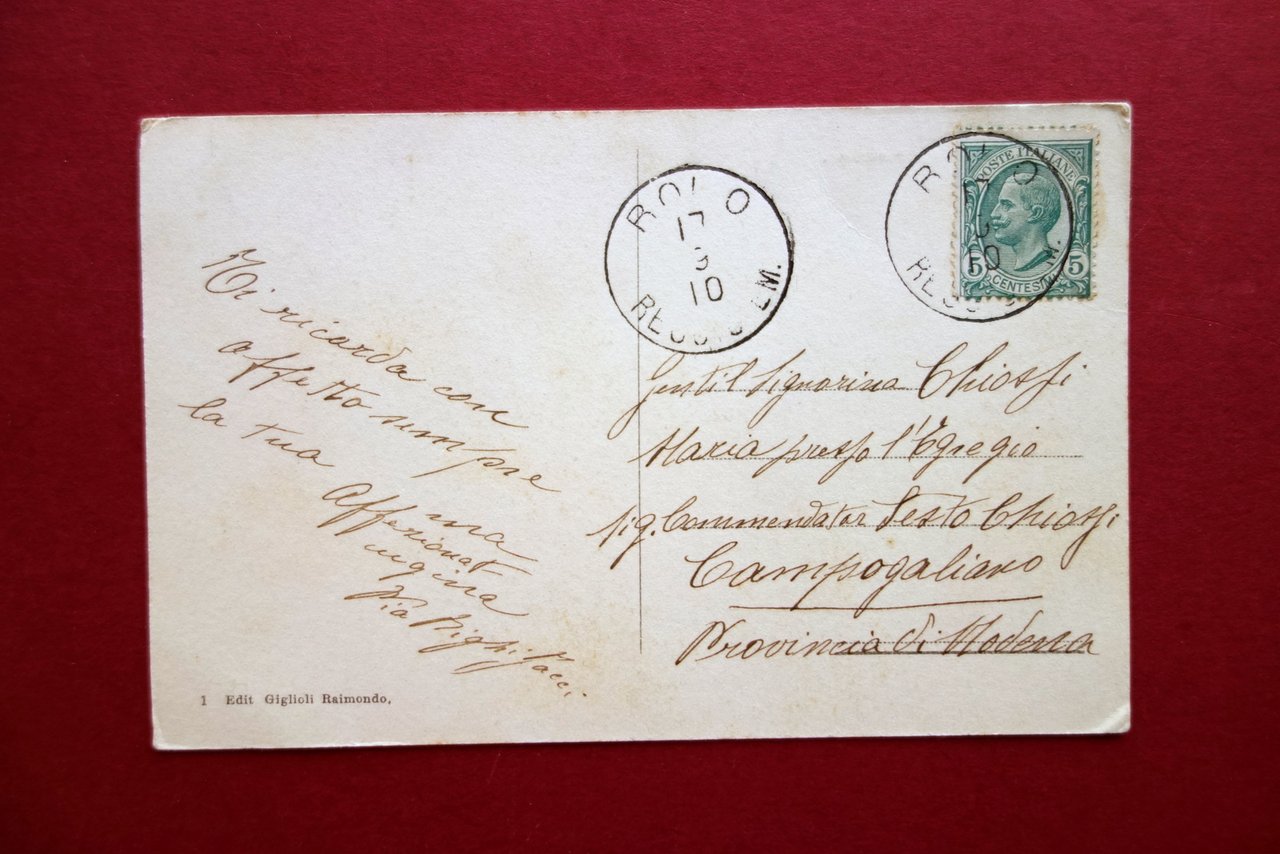 Ti ricorda con
affetto sempre
la tua
affezionatma
cugina
Pia Righi Jacci
1 Edit Giglioli Raimondo,
ROLO
17
3
10
REGGIO EM.
ROLO
3
10
REGGIO EM.
POSTE ITALIANE
5 CENTESIMI 5
Gentil Signorina Chiossi
Maria presso l'Egregio
Sig. Commendator Sesto Chiossi
Campogaliano
Provincia di Modena